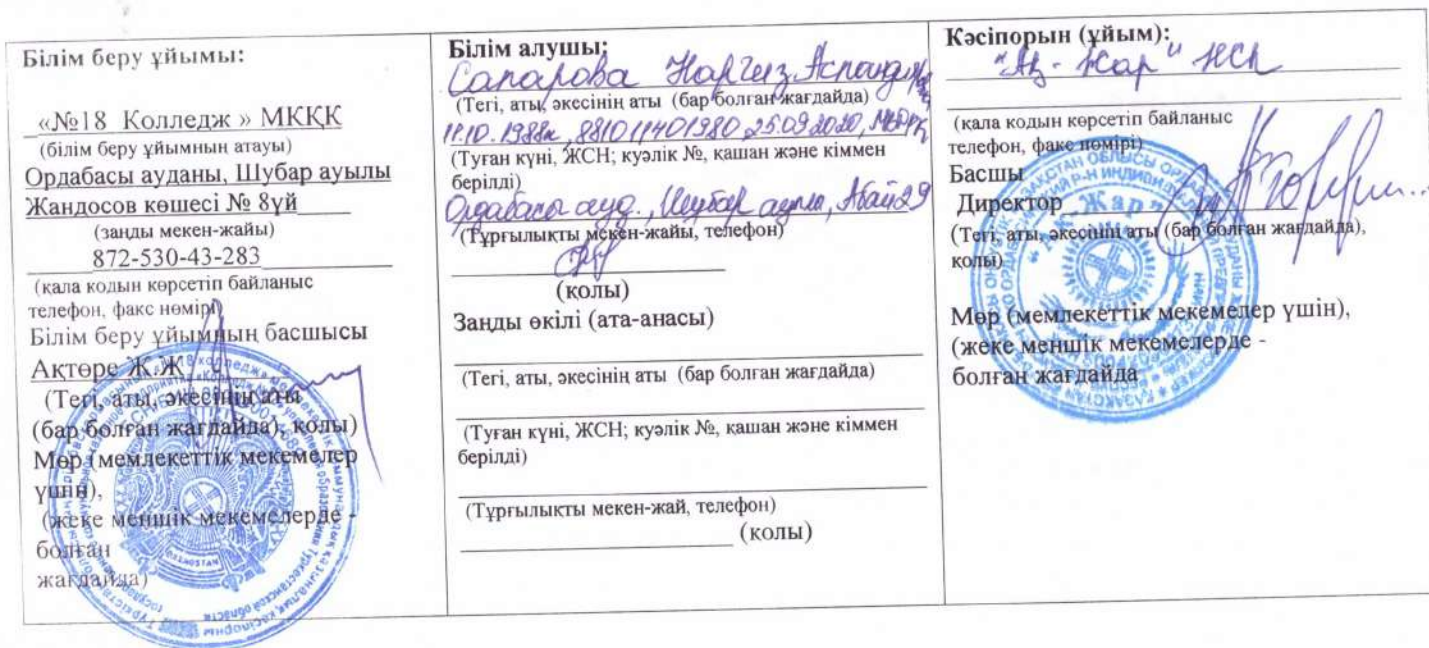 Білім беру ұйымы:
«№18 Колледж » МКҚК
(білім беру ұйымның атауы)
Ордабасы ауданы, Шубар ауылы
Жандосов көшесі № 8үй
(заңды мекен-жайы)
872-530-43-283
(қала кодын көрсетіп байланыс
телефон, факс нөмірі)
Білім беру ұйымның басшысы
Ақтөре Ж.Ж
(Тегі, аты, әкесінің аты
(бар болған жағдайда), қолы)
Мөр (мемлекеттік мекемелер
үшін),
(жеке меншік мекемелерде -
болған
жағдайда)
Білім алушы:
Сапарова Наргиз
(Тегі, аты, әкесінің аты (бар болған жағдайда)
11.10.1988ж, 881011401980 25.09.2020,
(Туған күні, ЖСН; куәлік №, қашан және кіммен
берілді)
Ордабасы ауд., Шубар ауылы, Абай 29
(Тұрғылықты мекен-жайы, телефон)
(қолы)
Заңды өкілі (ата-анасы)
(Тегі, аты, әкесінің аты (бар болған жағдайда)
(Туған күні, ЖСН; куәлік №, қашан және кіммен
берілді)
(Тұрғылықты мекен-жай, телефон)
(қолы)
Кәсіпорын (ұйым):
"Ақ-Жар"
(қала кодын көрсетіп байланыс
телефон, факс нөмірі)
Басшы
Директор
(Тегі, аты, әкесінің аты (бар болған жағдайда),
қолы)
"Ақ-Жар"
Мөр (мемлекеттік мекемелер үшін),
(жеке меншік мекемелерде -
болған жағдайда